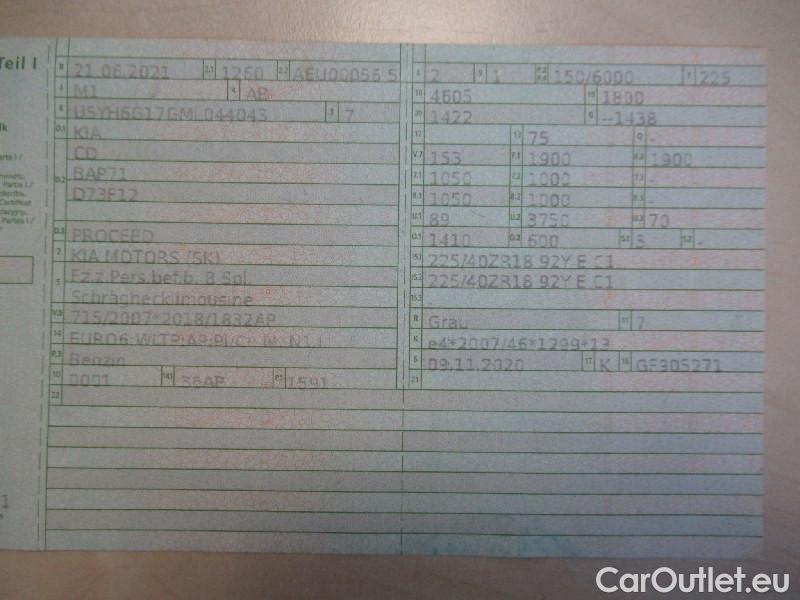 Teil I
B 21.06.2021 2.1 1260 2.2 AEU00056 5
J M1 4 AB
E U5YH6G17GML044043 3 7
D.1 KIA
CD
D.2 BAP71
D73F12
D.3 PROCEED
2 KIA MOTORS (SK)
5 Fz.z.Pers.bef.b. 8 Spl.
Schräghecklimousine
V.9 715/2007*2018/1832AP
14 EURO6
P.3 Benzin
10 0001 14.1 36AP P.1 1591
22
L 2 9 1 P.2 P.4 150/6000 T 225
18 4605 19 1800
20 1422 G --1438
12 13 75 Q -
V.7 153 F.1 1900 F.2 1900
7.1 1050 7.2 1000 7.3 -
8.1 1050 8.2 1000 8.3 -
U.1 89 U.2 3750 U.3 70
O.1 1410 O.2 600 S.1 5 S.2 -
15.1 225/40ZR18 92Y E C1
15.2 225/40ZR18 92Y E C1
15.3
R Grau 11 7
K e4*2007/46*1299*13
6 09.11.2020 17 K 16 GF305271
21
CarOutlet.eu